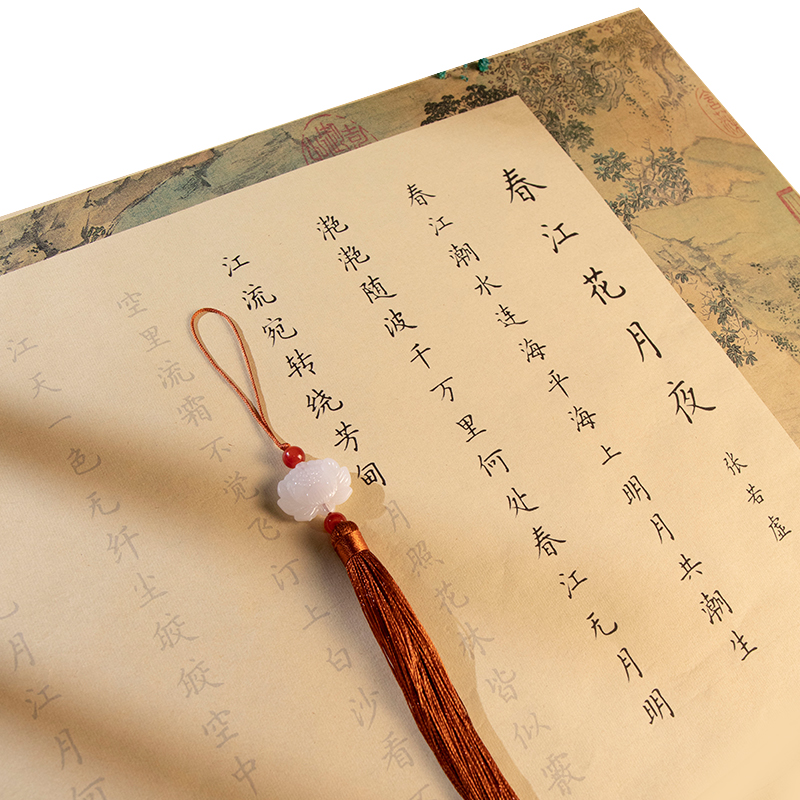 春江花月夜
张若虚
春江潮水连海平海上明月共潮生
滟滟随波千万里何处春江无月明
江流宛转绕芳甸月照花林皆似霰
空里流霜不觉飞汀上白沙看
江天一色无纤尘皎皎空中
月江月何